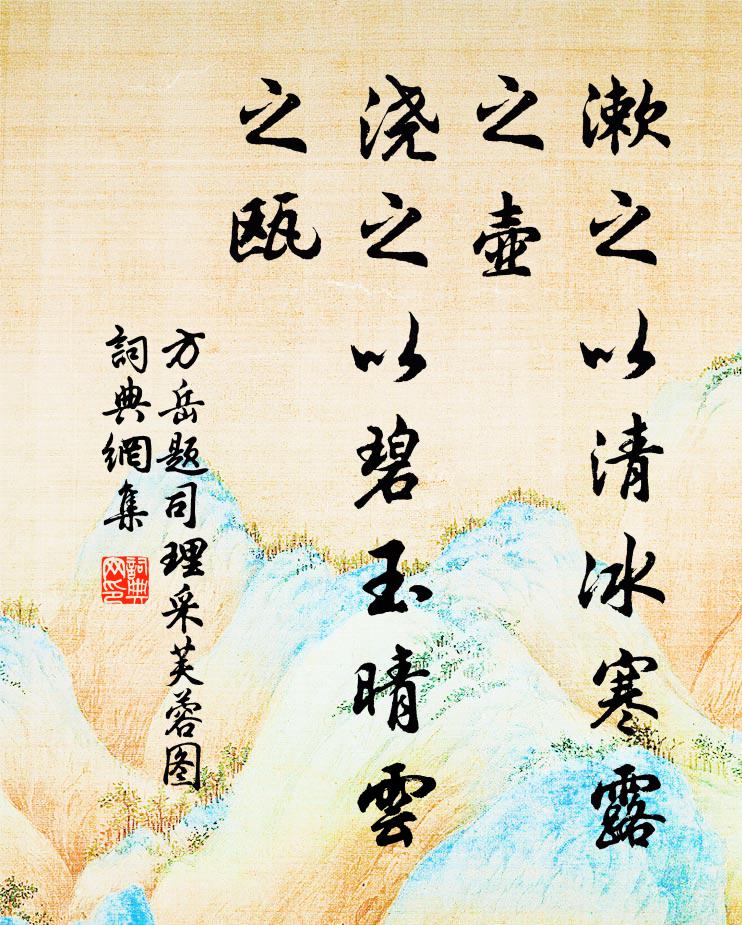 漱之以清冰寒露
之壺
浇之以碧玉晴雲
之瓯
方岳题司理采芙蓉图
詞典網集
詞典
网印